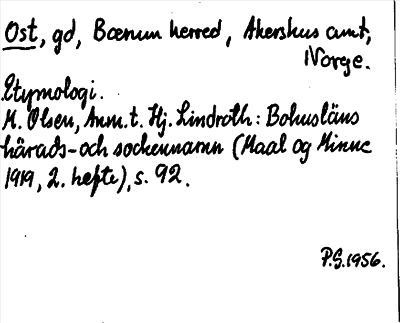 Ost, gd, Bærum herred, Akershus amt,
Norge.
Etymologi.
M. Olsen, Anm. t. Hj. Lindroth: Bohusläns
härads- och sockennamn (Maal og Minne
1919, 2. hefte), s. 92.
P.S. 1956.